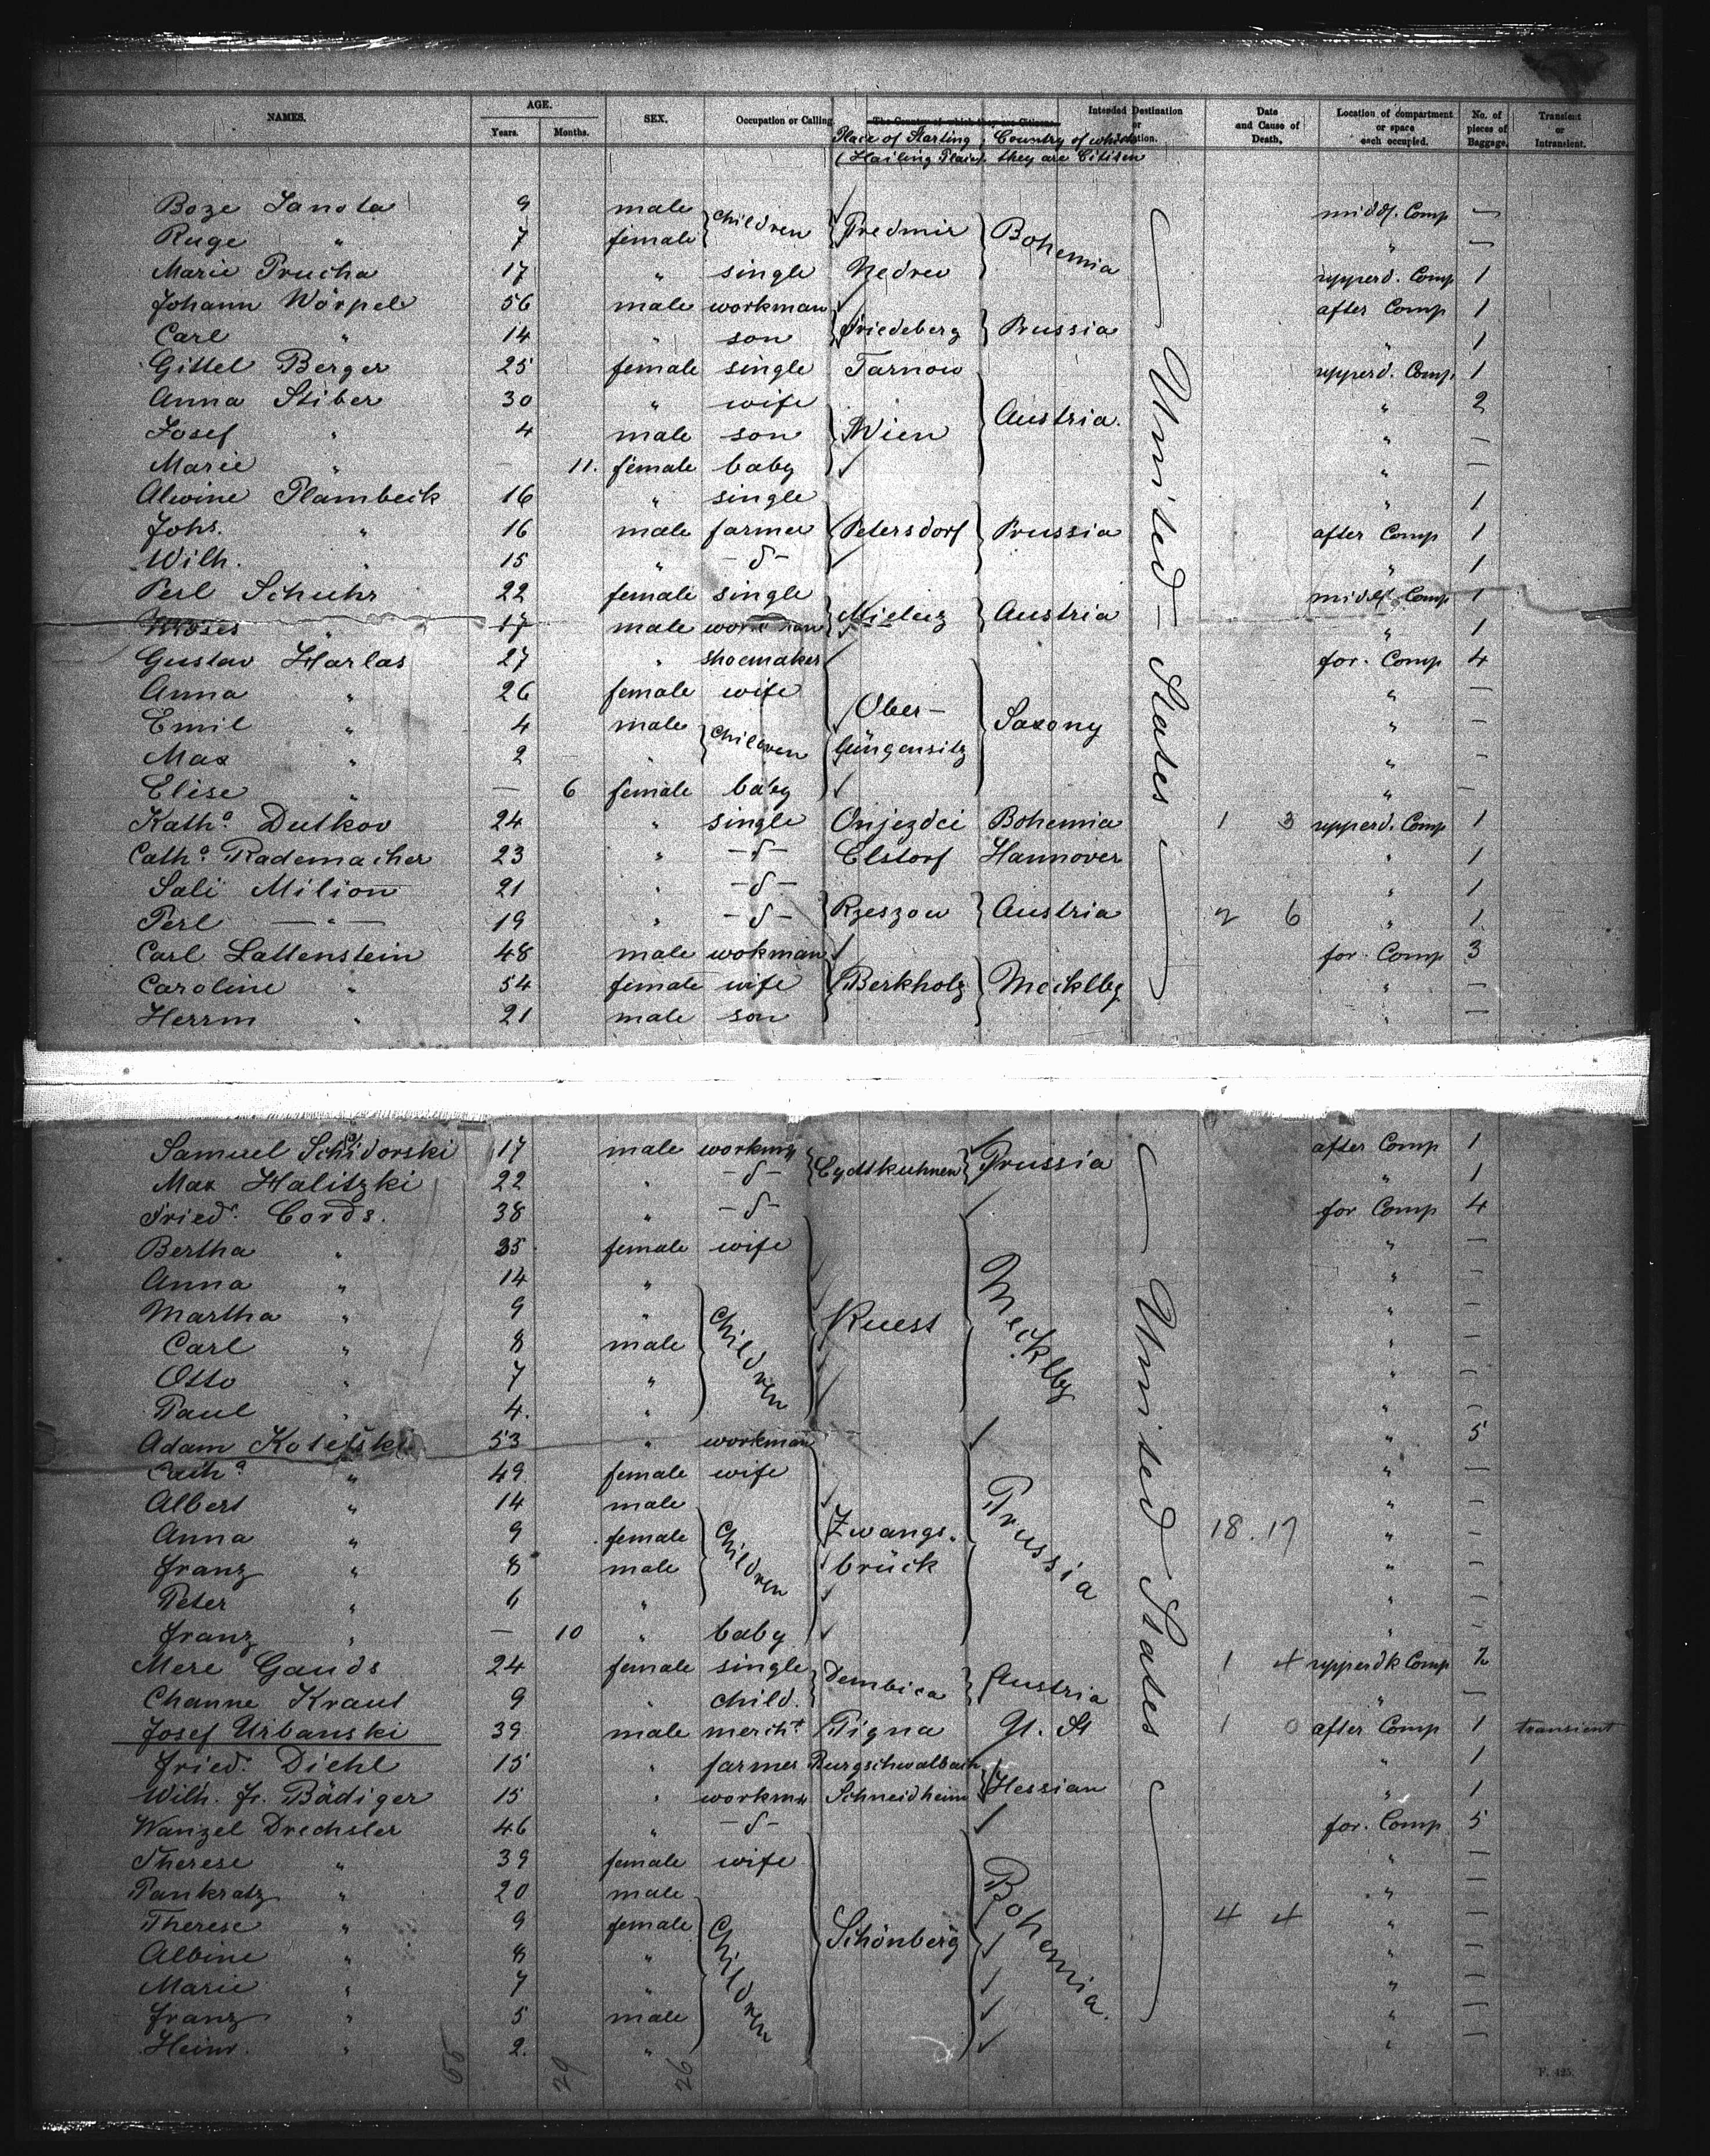 NAMES. AGE. SEX. Occupation or Calling The Country of which they are Citizens. Intended Destination or Location. Date and Cause of Death. Location of compartment or space each occupied. No. of pieces of Baggage. Transient or Intransient.
Years. Months. Place of Starting (Hailing Place). Country of which they are Citizen
Boze Sanota 9 male children Predmir Bohemia midd. Comp —
Ruge " 7 female " —
Marie Prucha 17 " single Nedrev upperd. Comp 1
Johann Wörpel 56 male workman Friedeberg Prussia after Comp 1
Carl " 14 " son " 1
Gittel Berger 25 female single Tarnow Austria. upperd. Comp. 1
Anna Stiber 30 " wife Wien " 2
Josef " 4 male son " —
Marie " — 11. female baby " —
Alwine Plambeck 16 " single Petersdorf Prussia " 1
Johs. " 16 male farmer after Comp 1
Wilh. " 15 " -δ- " 1
Perl Schuhr 22 female single Mielecz Austria midd. Comp 1
Moses " 17 male workman " 1
Gustav Harlas 27 " shoemaker Ober- Saxony for. Comp 4
Anna " 26 female wife " —
Emil " 4 male children " —
Max " 2 " " —
Elise " — 6 female baby " —
Kath.a Dutkov 24 " single Onjezdci Bohemia 1 3 upperd. Comp 1
Cath.a Rademacher 23 " -δ- Elstorf Hannover " 1
Sali Milion 21 " -δ- Rzeszow Austria " 1
Perl — " — 19 " -δ- 2 6 " 1
Carl Lattenstein 48 male wokman Berkholz Mecklbg for. Comp 3
Caroline " 54 female wife " —
Herrm " 21 male son " —
United States
Samuel Schidorski 17 male workmn Eydtkuhnen Prussia after Comp 1
Max Halitzki 22 " -δ- " 1
Fried. Cords. 38 " -δ- Kuest Mecklbg for Comp 4
Bertha " 35 female wife " —
Anna " 14 " Children " —
Martha " 9 " " —
Carl " 8 male " —
Otto " 7 " " —
Paul " 4. " " —
Adam Kotefski 53 " workman Zwangs- brück Prussia " 5
Cath.a " 49 female wife " —
Albert " 14 male Children " —
Anna " 9 female 18. 17 " —
Franz " 8 male " —
Peter " 6 " " —
Franz " — 10 " baby " —
Mere Gands 24 female single Dembica Austria 1 4 upperdk Comp 2
Channe Kraut 9 " child. " —
Josef Urbanski 39 male mercht Pigna U. St 1 0 after Comp 1 transient
Fried. Diehl 15 " farmer Burgschwalbach Hessian " 1
Wilh. Fr. Bädiger 15 " workmn Schneidheim " 1
Wanzel Drechsler 46 " -δ- Schönberg Bohemia. for. Comp 5
Therese " 39 female wife " —
Pankratz " 20 male Children " —
Therese " 9 female 4 4 " —
Albine " 8 " " —
Marie " 7 " " —
Franz " 5 male " —
Heinr. " 2. " " —
United States
55 29 26
F. 425.